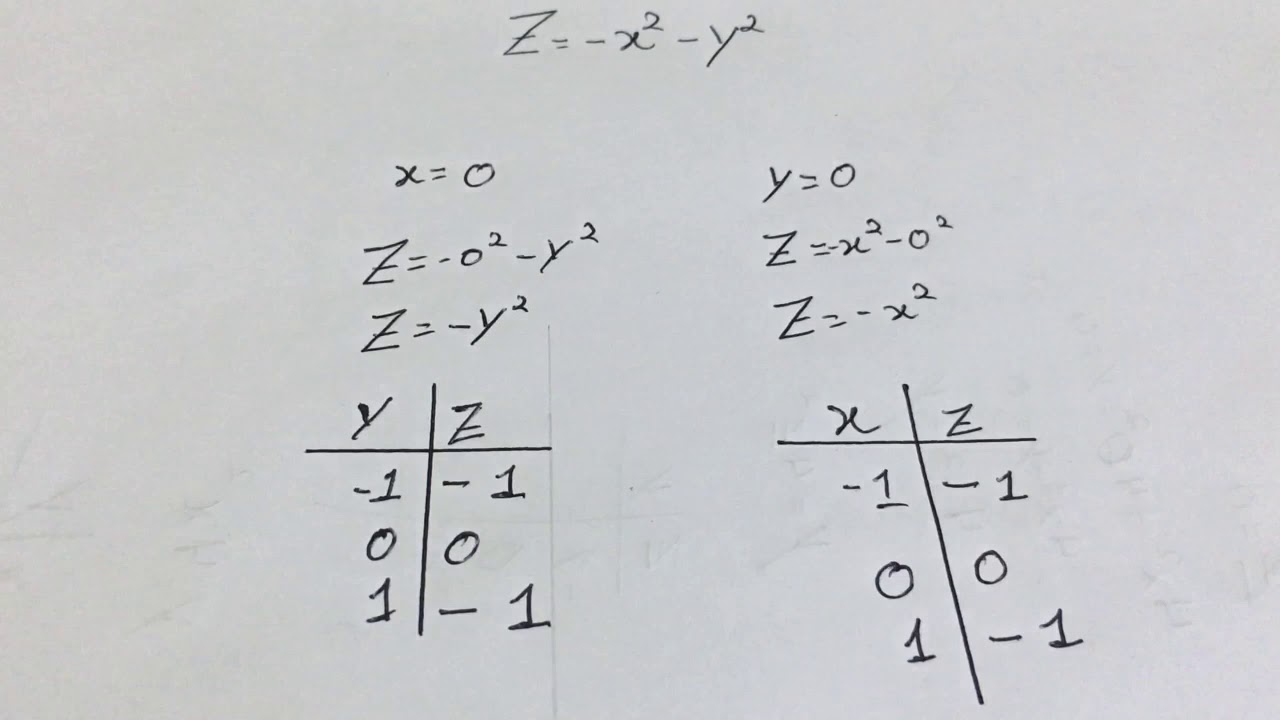 Z = -x² - y²
x = 0
Z = -0² - y²
Z = -y²
y | Z
-1 | -1
0 | 0
1 | -1
y = 0
Z = -x² - 0²
Z = -x²
x | Z
-1 | -1
0 | 0
1 | -1